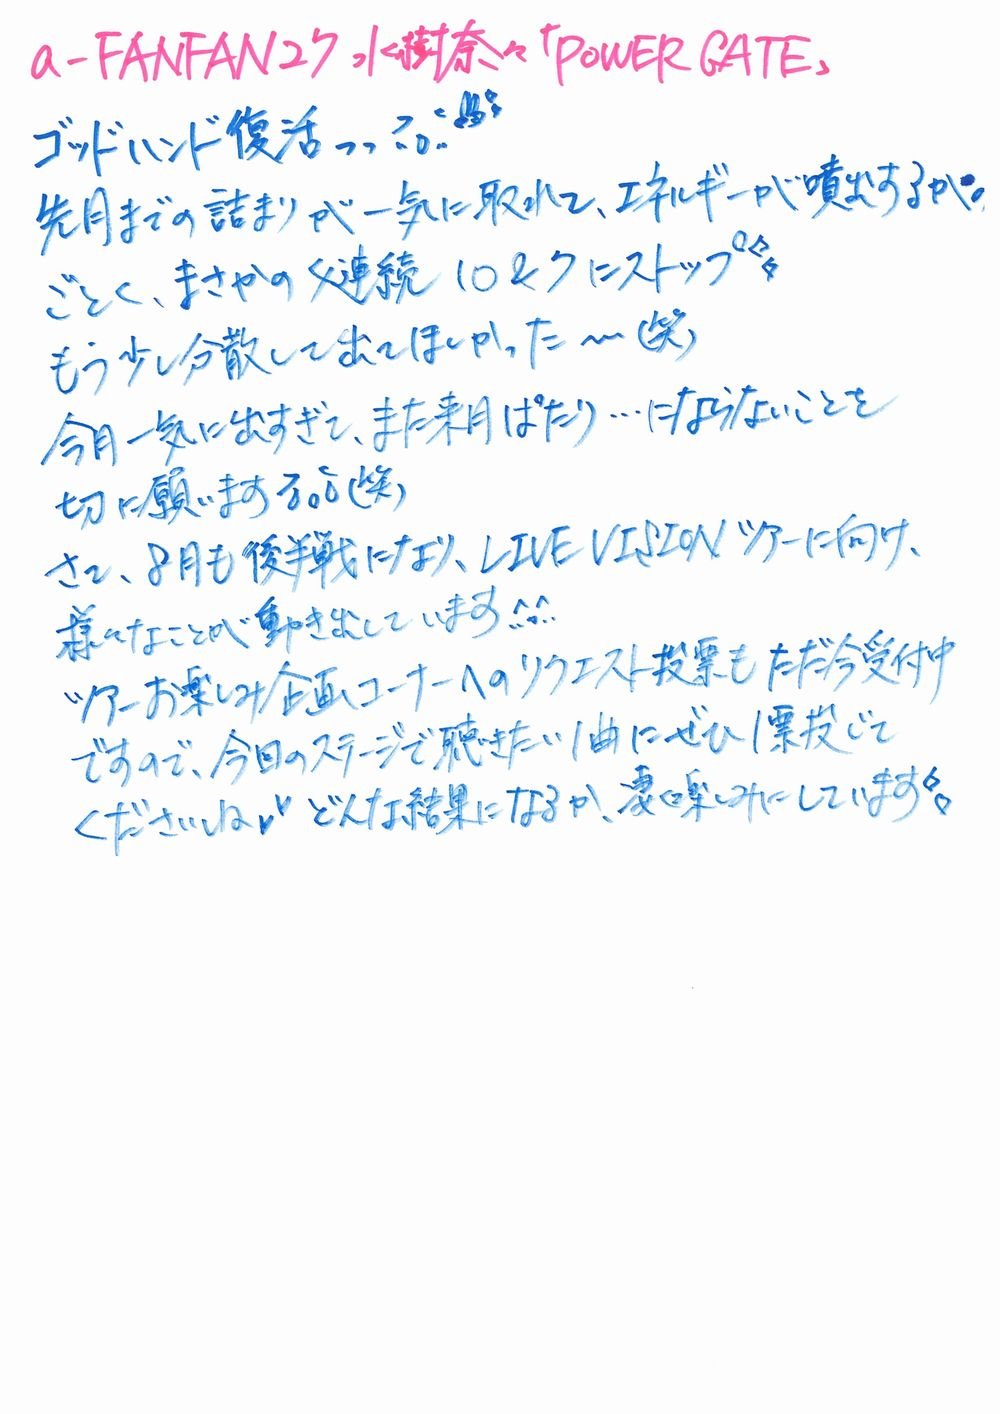 a-FANFAN27 水樹奈々「POWER GATE」
ゴッドハンド復活っっ!!
先月までの詰まりが一気に取れて、エネルギーが噴出するが
ごとく、まさかの 連続 10&7にストップ
もう少し分散して出てほしかった〜(笑)
今月一気に出すぎて、また来月ぱたり…にならないことを
切に願います!!(笑)
さて、8月も後半戦になり、LIVE VISIONツアーに向け、
様々なことが動き出しています^^
ツアーお楽しみ企画コーナーへのリクエスト投票もただ今受付中
ですので、今回のステージで聴きたい1曲にぜひ1票投じて
くださいね♥ どんな結果になるか、凄く楽しみにしています